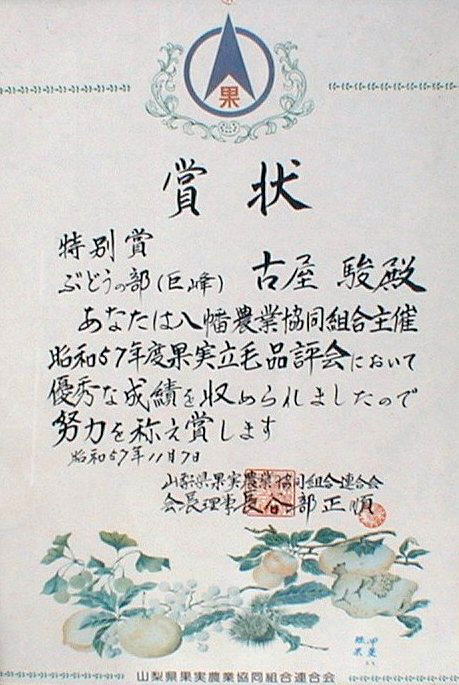 果
賞状
特別賞
ぶどうの部(巨峰) 古屋 駿殿
あなたは八幡農業協同組合主催
昭和57年度果実立毛品評会において
優秀な成績を収められましたので
努力を称え賞します
昭和57年11月7日
山梨県果実農業協同組合連合会
会長理事長谷部正順
甲斐八
珍果
山梨県果実農業協同組合連合会